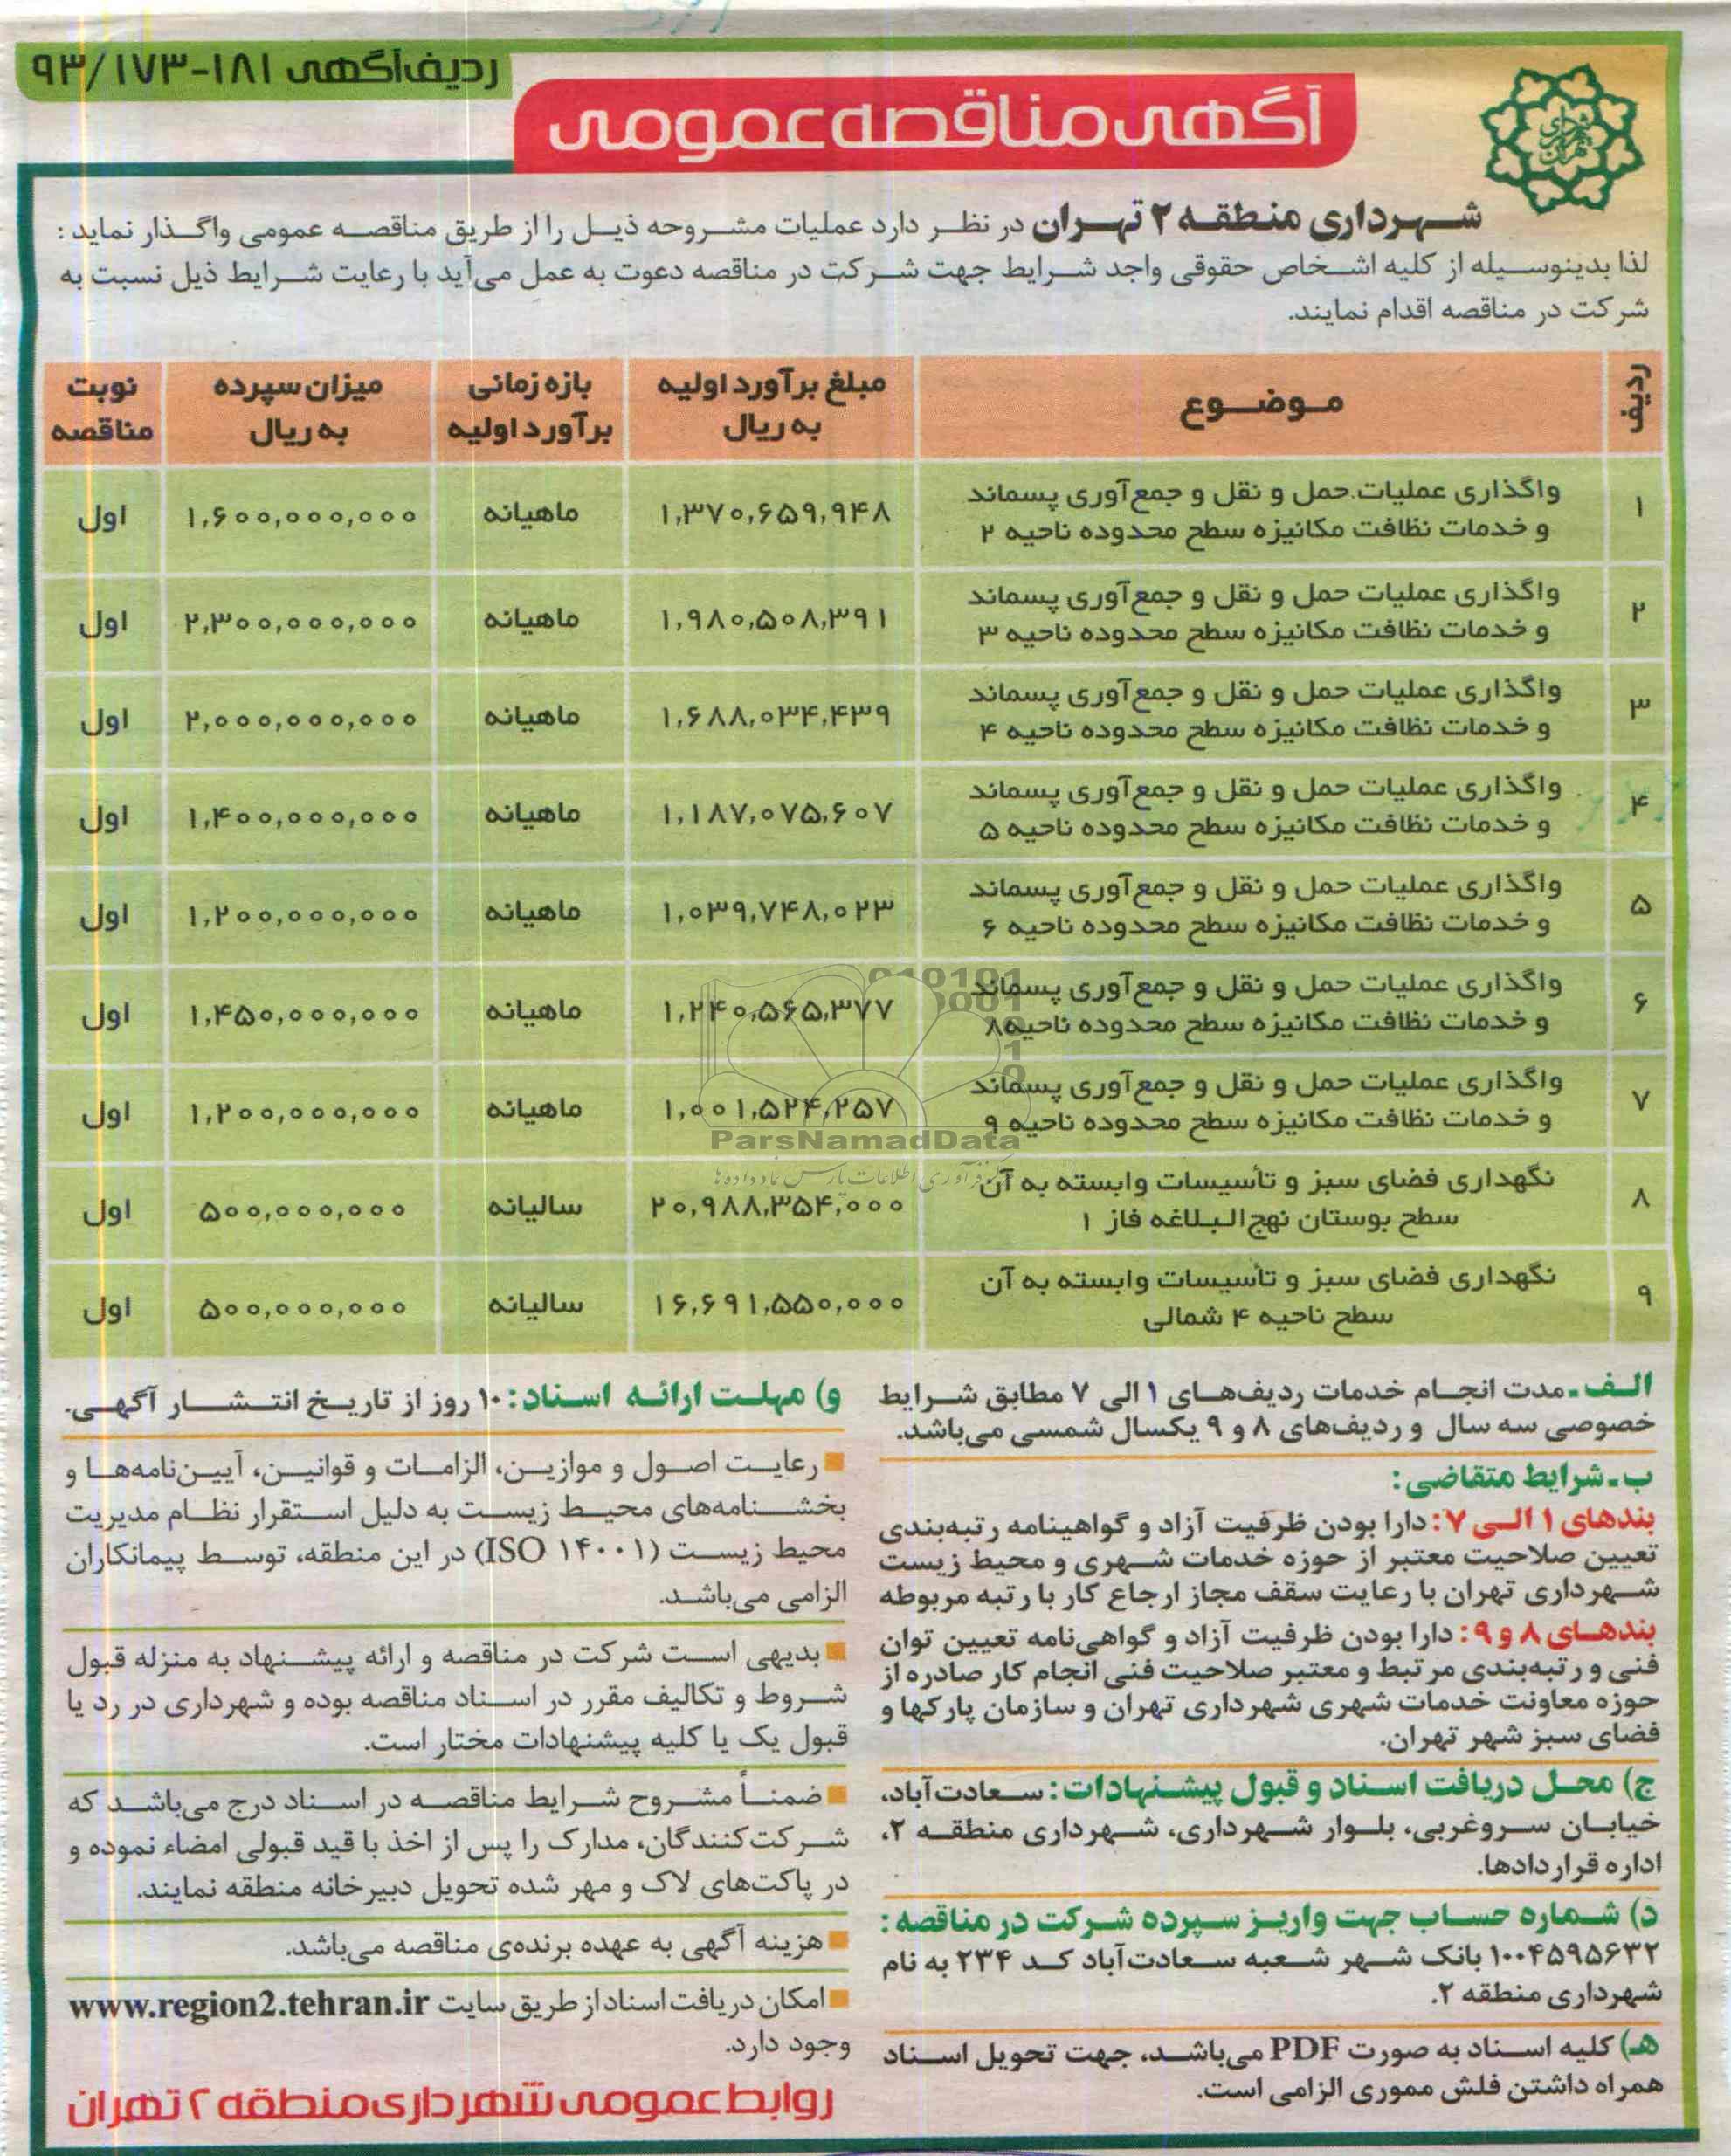 ردیف‌آگهی ۱۸۱-۹۳/۱۷۳
آگهی مناقصه عمومی
شهرداری منطقه ۲ تهران در نظر دارد عملیات مشروحه ذیل را از طریق مناقصه عمومی واگذار نماید :
لذا بدینوسیله از کلیه اشخاص حقوقی واجد شرایط جهت شرکت در مناقصه دعوت به عمل می‌آید با رعایت شرایط ذیل نسبت به
شرکت در مناقصه اقدام نمایند.
ردیف موضوع مبلغ برآورد اولیه به ریال بازه زمانی برآورد اولیه میزان سپرده به ریال نوبت مناقصه
۱ واگذاری عملیات حمل و نقل و جمع‌آوری پسماند
و خدمات نظافت مکانیزه سطح محدوده ناحیه ۲ ۱,۳۷۰,۶۵۹,۹۴۸ ماهیانه ۱,۶۰۰,۰۰۰,۰۰۰ اول
۲ واگذاری عملیات حمل و نقل و جمع‌آوری پسماند
و خدمات نظافت مکانیزه سطح محدوده ناحیه ۳ ۱,۹۸۰,۵۰۸,۳۹۱ ماهیانه ۲,۳۰۰,۰۰۰,۰۰۰ اول
۳ واگذاری عملیات حمل و نقل و جمع‌آوری پسماند
و خدمات نظافت مکانیزه سطح محدوده ناحیه ۴ ۱,۶۸۸,۰۳۴,۴۳۹ ماهیانه ۲,۰۰۰,۰۰۰,۰۰۰ اول
۴ واگذاری عملیات حمل و نقل و جمع‌آوری پسماند
و خدمات نظافت مکانیزه سطح محدوده ناحیه ۵ ۱,۱۸۷,۰۷۵,۶۰۷ ماهیانه ۱,۴۰۰,۰۰۰,۰۰۰ اول
۵ واگذاری عملیات حمل و نقل و جمع‌آوری پسماند
و خدمات نظافت مکانیزه سطح محدوده ناحیه ۶ ۱,۰۳۹,۷۴۸,۰۲۳ ماهیانه ۱,۲۰۰,۰۰۰,۰۰۰ اول
۶ واگذاری عملیات حمل و نقل و جمع‌آوری پسماند
و خدمات نظافت مکانیزه سطح محدوده ناحیه۸ ۱,۲۴۰,۵۶۵,۳۷۷ ماهیانه ۱,۴۵۰,۰۰۰,۰۰۰ اول
۷ واگذاری عملیات حمل و نقل و جمع‌آوری پسماند
و خدمات نظافت مکانیزه سطح محدوده ناحیه ۹ ۱,۰۰۱,۵۲۴,۲۵۷ ماهیانه ۱,۲۰۰,۰۰۰,۰۰۰ اول
ParsNamadData
۸ نگهداری فضای سبز و تأسیسات وابسته به آن
سطح بوستان نهج‌البلاغه فاز ۱ ۲۰,۹۸۸,۳۵۴,۰۰۰ سالیانه ۵۰۰,۰۰۰,۰۰۰ اول
۹ نگهداری فضای سبز و تأسیسات وابسته به آن
سطح ناحیه ۴ شمالی ۱۶,۶۹۱,۵۵۰,۰۰۰ سالیانه ۵۰۰,۰۰۰,۰۰۰ اول
الف-مدت انجام خدمات ردیف‌های ۱ الی ۷ مطابق شرایط
خصوصی سه سال و ردیف‌های ۸ و ۹ یکسال شمسی می‌باشد.
ب-شرایط متقاضی:
بندهای ۱ الی ۷: دارا بودن ظرفیت آزاد و گواهینامه رتبه‌بندی
تعیین صلاحیت معتبر از حوزه خدمات شهری و محیط زیست
شهرداری تهران با رعایت سقف مجاز ارجاع کار با رتبه مربوطه
بندهای ۸ و ۹: دارا بودن ظرفیت آزاد و گواهی‌نامه تعیین توان
فنی و رتبه‌بندی مرتبط و معتبر صلاحیت فنی انجام کار صادره از
حوزه معاونت خدمات شهری شهرداری تهران و سازمان پارکها و
فضای سبز شهر تهران.
ج) محل دریافت اسناد و قبول پیشنهادات: سعادت‌آباد،
خیابان سروغربی، بلوار شهرداری، شهرداری منطقه ۲،
اداره قراردادها.
د) شماره حساب جهت واریز سپرده شرکت در مناقصه :
۱۰۰۴۵۹۵۶۳۲ بانک شهر شعبه سعادت‌آباد کد ۲۳۴ به نام
شهرداری منطقه ۲.
هـ) کلیه اسناد به صورت PDF می‌باشد، جهت تحویل اسناد
همراه داشتن فلش مموری الزامی است.
و) مهلت ارائه اسناد: ۱۰ روز از تاریخ انتشار آگهی.
رعایت اصول و موازین، الزامات و قوانین، آیین‌نامه‌ها و
بخشنامه‌های محیط زیست به دلیل استقرار نظام مدیریت
محیط زیست (ISO ۱۴۰۰۱) در این منطقه، توسط پیمانکاران
الزامی می‌باشد.
بدیهی است شرکت در مناقصه و ارائه پیشنهاد به منزله قبول
شروط و تکالیف مقرر در اسناد مناقصه بوده و شهرداری در رد یا
قبول یک یا کلیه پیشنهادات مختار است.
ضمناً مشروح شرایط مناقصه در اسناد درج می‌باشد که
شرکت‌کنندگان، مدارک را پس از اخذ با قید قبولی امضاء نموده و
در پاکت‌های لاک و مهر شده تحویل دبیرخانه منطقه نمایند.
هزینه آگهی به عهده برنده‌ی مناقصه می‌باشد.
امکان دریافت اسناد از طریق سایت www.region2.tehran.ir
وجود دارد.
روابط عمومی شهرداری منطقه ۲ تهران